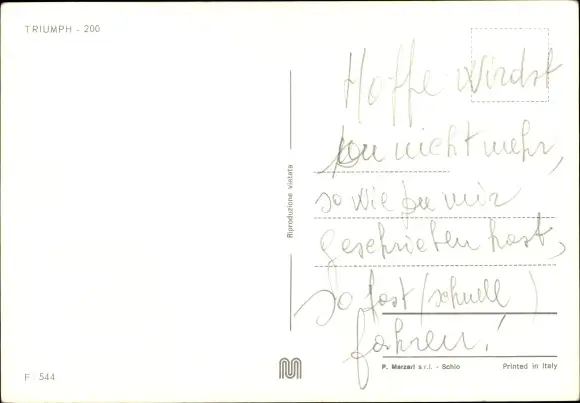 TRIUMPH - 200
Hoffe wirdst
Du nicht mehr,
so wie Du mir
geschrieben hast,
so fast (schnell)
fahren!
Riproduzione vietata
F - 544
P. Marzari s.r.l. - Schio
Printed in Italy